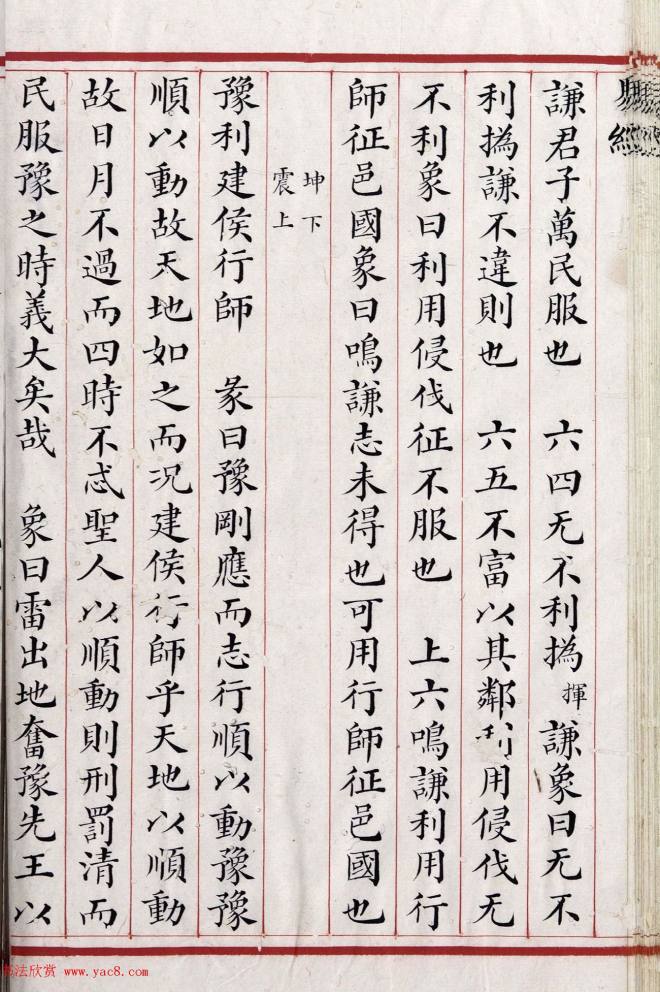 謙君子萬民服也　六四无不利撝揮謙象曰无不
利撝謙不違則也　六五不富以其鄰利用侵伐无
不利象曰利用侵伐征不服也　上六鳴謙利用行
師征邑國象曰鳴謙志未得也可用行師征邑國也
坤下
震上
豫利建侯行師　彖曰豫剛應而志行順以動豫豫
順以動故天地如之而況建侯行師乎天地以順動
故日月不過而四時不忒聖人以順動則刑罰清而
民服豫之時義大矣哉　象曰雷出地奮豫先王以
法欣赏 www.yac8.com